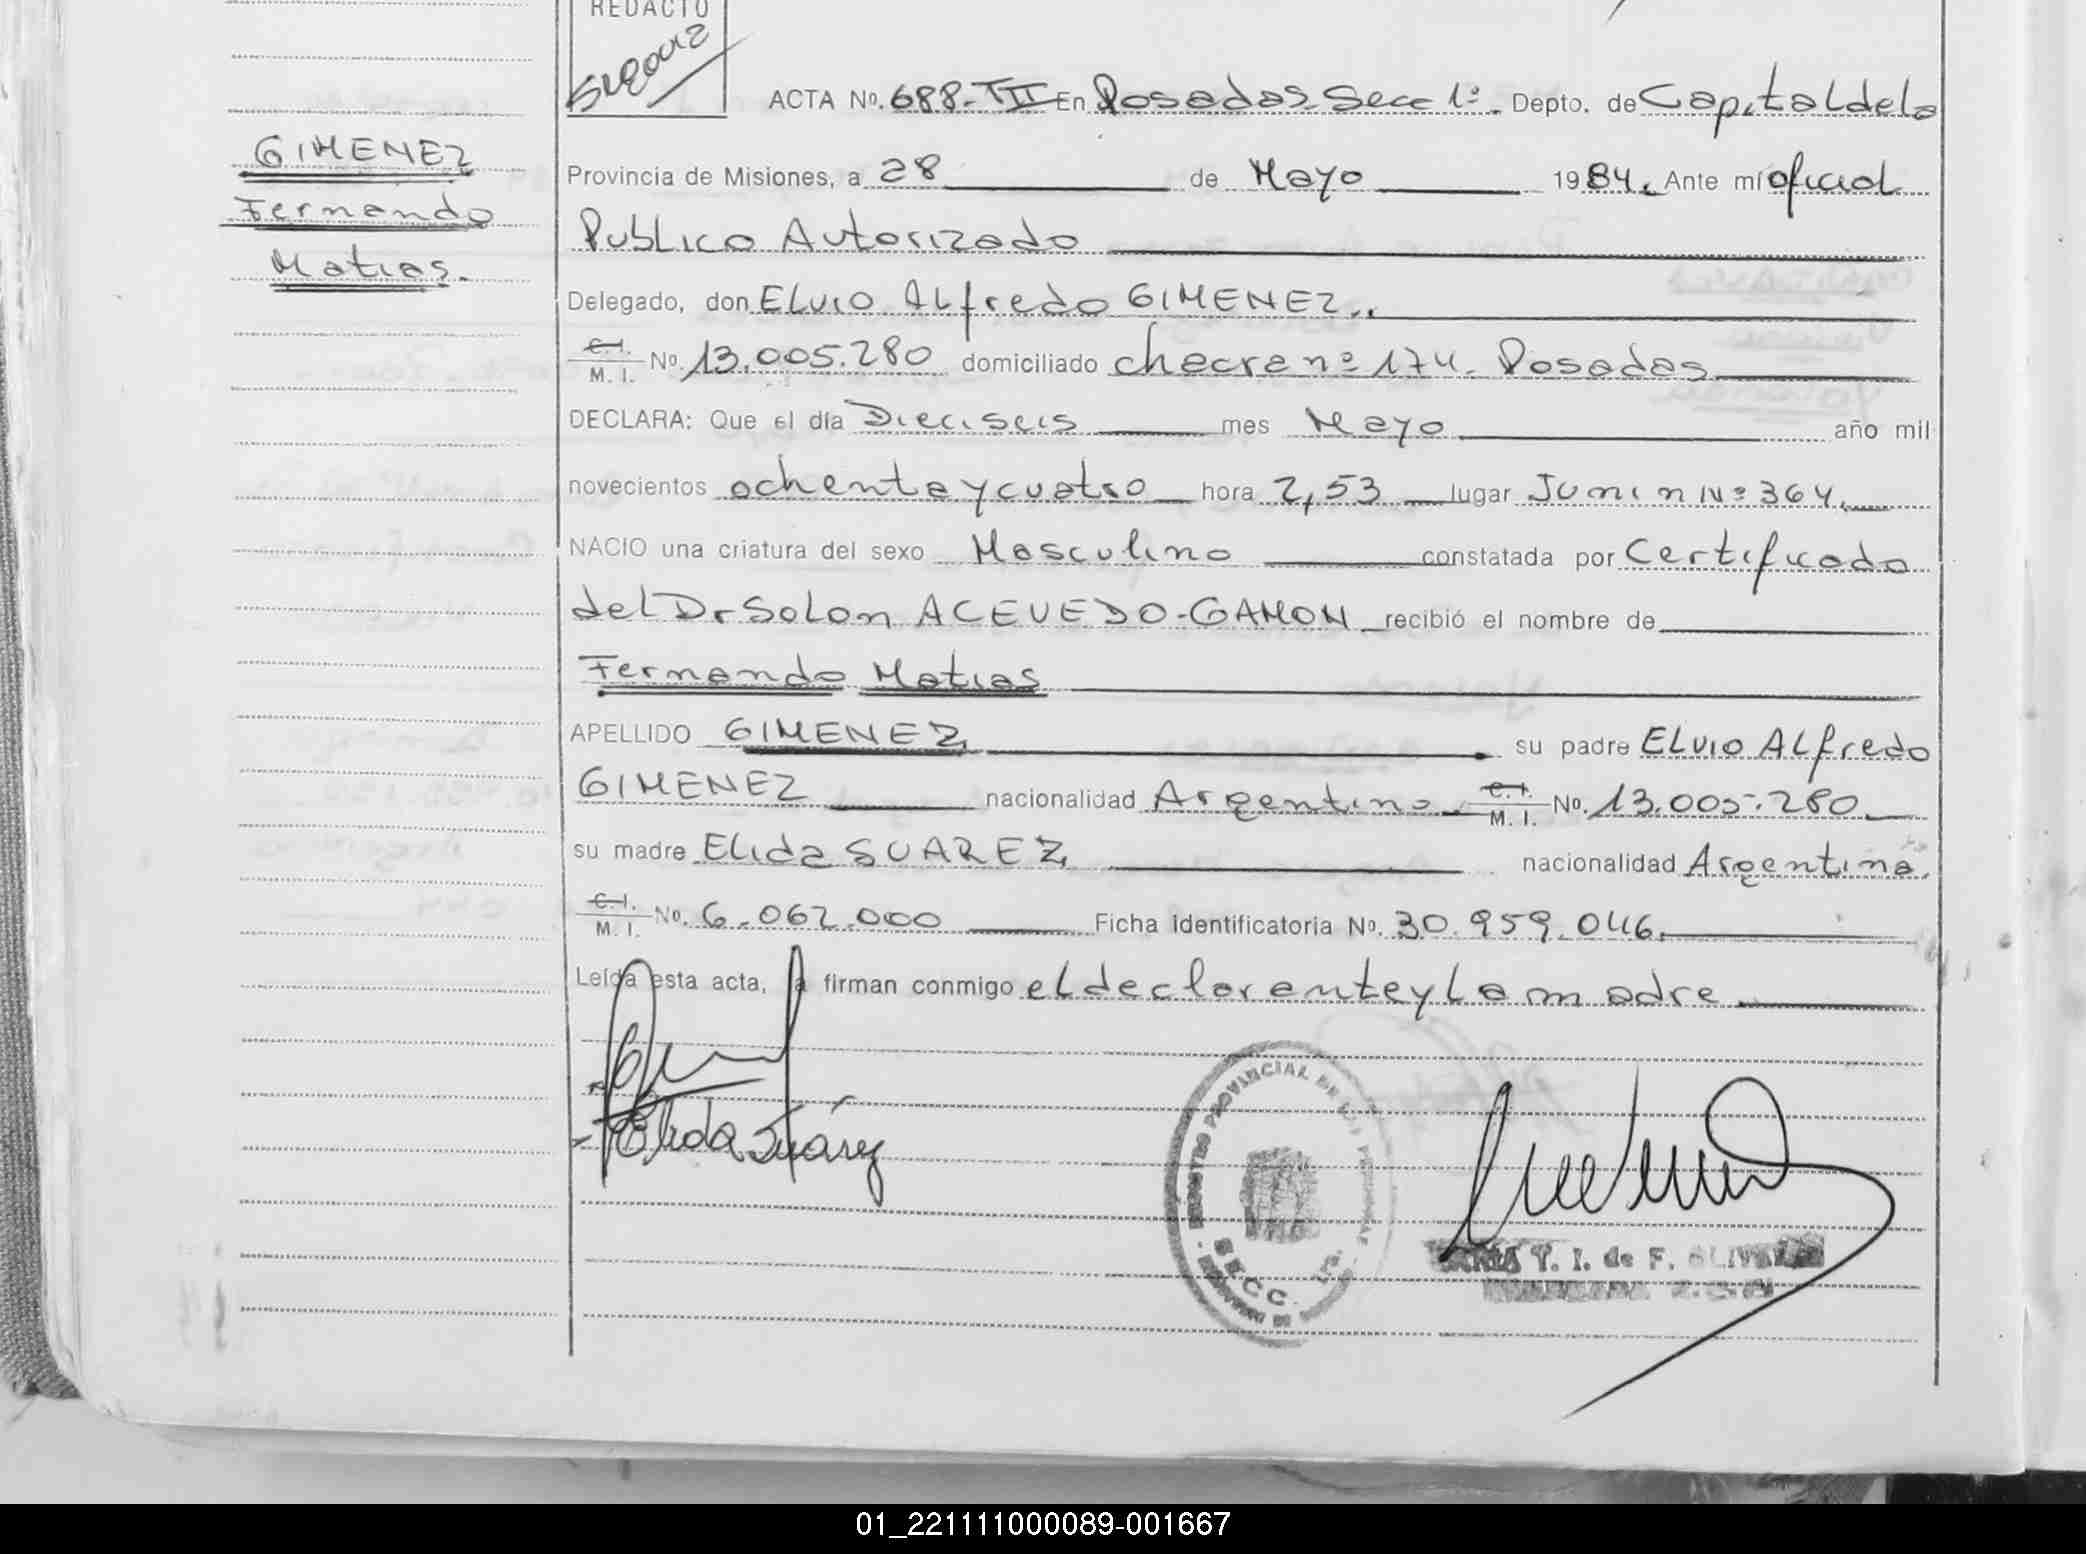 REDACTO
ACTA Nº. 688-III En Posadas Secc 1ª. Depto. de Capital de la
GIMENEZ
Fernando
Matias.
Provincia de Misiones, a 28 de Mayo 1984. Ante mí oficial
Publico Autorizado
Delegado, don ELVIO ALfredo GIMENEZ..
C. I. M. I. Nº. 13.005.280 domiciliado checra nº 174. Posadas
DECLARA: Que el día Dieciseis mes Mayo año mil
novecientos ochenta y cuatro hora 2,53 lugar Junin Nº 364.
NACIO una criatura del sexo Masculino constatada por Certificado
del Dr SoLon ACEVEDO-GAMON recibió el nombre de
Fernando Matias
APELLIDO GIMENEZ su padre ELVIO ALfredo
GIMENEZ nacionalidad Argentino C. I. M. I. Nº. 13.005.280
su madre ELida SUAREZ nacionalidad Argentina.
C. I. M. I. Nº. 6.062.000 Ficha Identificatoria Nº. 30.959.046.
Leída esta acta, la firman conmigo el declarante y La madre
Elida Suárez
REGISTRO PROVINCIAL DE LAS PERSONAS
SECC. 1ra.
Y. I. de F. OLIVERA
01_221111000089-001667